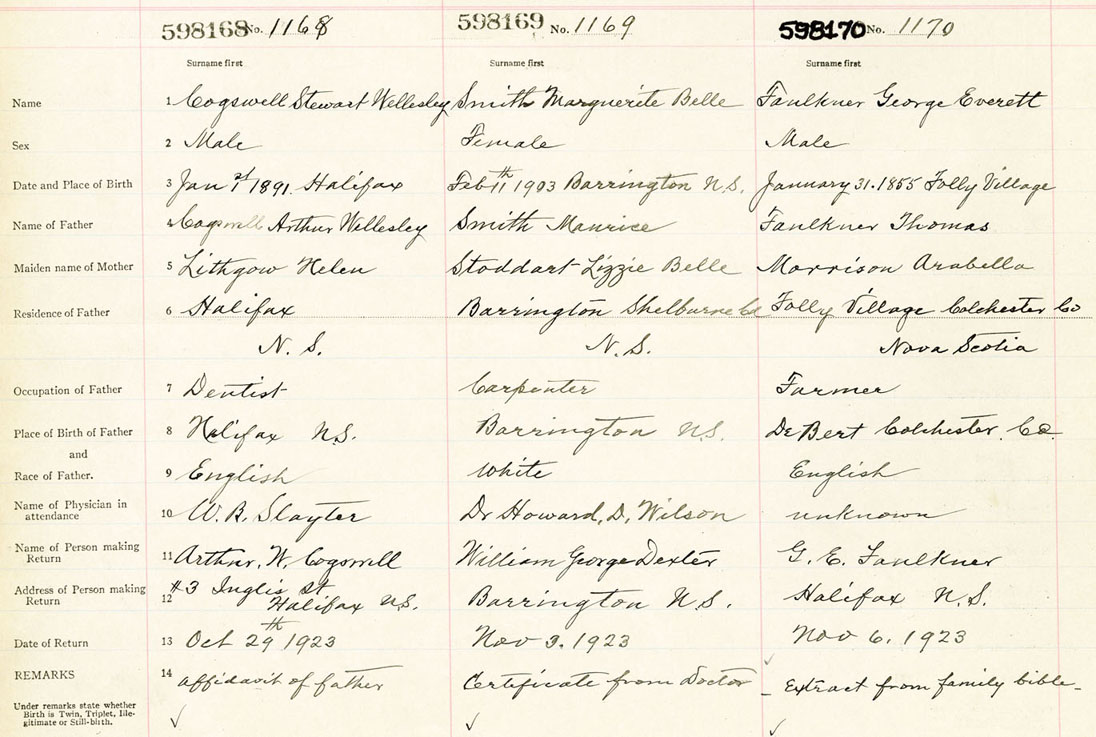 598168 No. 1168 598169 No. 1169 598170 No. 1170
Surname first Surname first Surname first
Name 1 Cogswell Stewart Wellesley Smith Marguerite Belle Faulkner George Everett
Sex 2 Male Female Male
Date and Place of Birth 3 Jan 1st 1891 Halifax Feb 11th 1903 Barrington N.S. January 31. 1855 Folly Village
Name of Father 4 Cogswell Arthur Wellesley Smith Maurice Faulkner Thomas
Maiden name of Mother 5 Lithgow Helen Stoddart Lizzie Belle Morrison Arabella
Residence of Father 6 Halifax Barrington Shelburne Co Folly Village Colchester Co
N. S. N. S. Nova Scotia
Occupation of Father 7 Dentist Carpenter Farmer
Place of Birth of Father 8 Halifax N.S. Barrington N.S. DeBert Colchester Co.
and
Race of Father. 9 English White English
Name of Physician in
attendance 10 W. B. Slayter Dr Howard, D, Wilson unknown
Name of Person making
Return 11 Arthur. W. Cogswell William George Dexter G. E. Faulkner
Address of Person making #3 Inglis St
Return 12 Halifax N.S. Barrington N.S. Halifax N.S.
Date of Return 13 Oct 29th 1923 Nov 3. 1923 Nov 6. 1923
REMARKS 14 affidavit of father Certificate from Doctor - Extract from family bible -
Under remarks state whether
Birth is Twin, Triplet, Ille-
gitimate or Still-birth. ✓ ✓ ✓